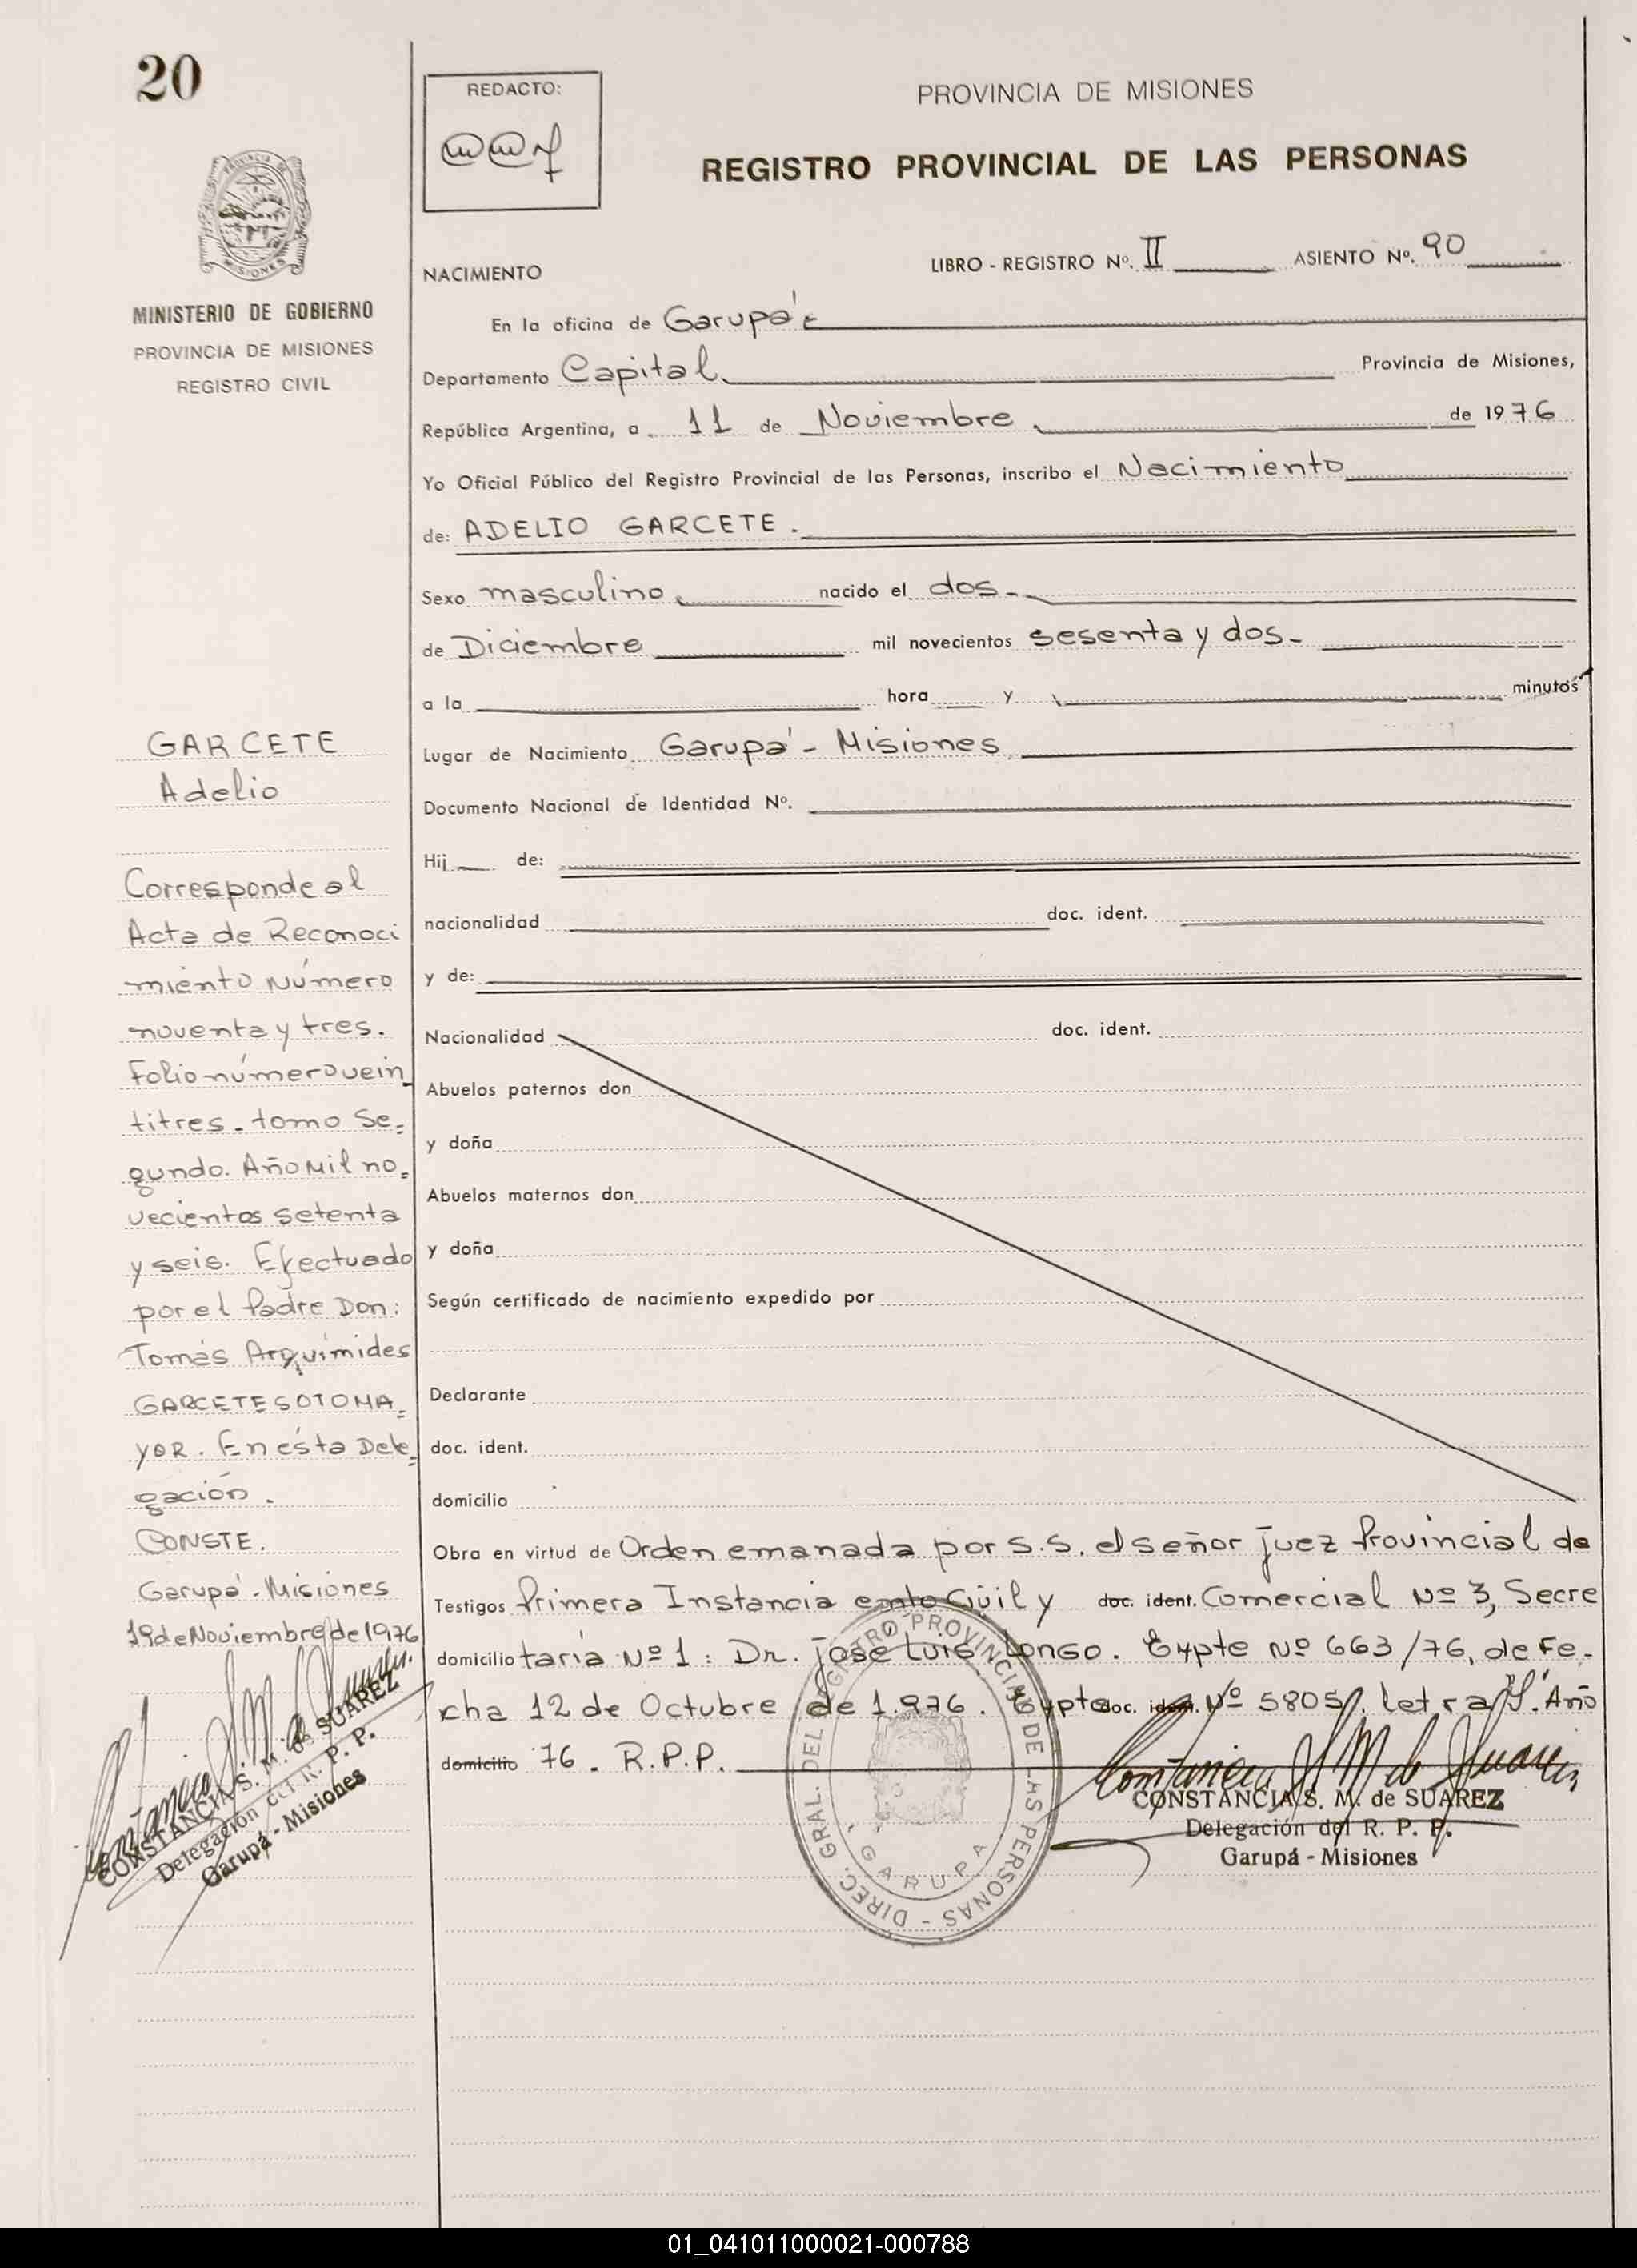 20
REDACTO:
PROVINCIA DE MISIONES
REGISTRO PROVINCIAL DE LAS PERSONAS
MISIONES
MINISTERIO DE GOBIERNO
PROVINCIA DE MISIONES
REGISTRO CIVIL
NACIMIENTO LIBRO - REGISTRO Nº. II ASIENTO Nº. 90
En la oficina de Garupá
Departamento Capital. Provincia de Misiones,
República Argentina, a 11 de Noviembre de 1976
Yo Oficial Público del Registro Provincial de las Personas, inscribo el Nacimiento
de: ADELIO GARCETE.
Sexo masculino. nacido el dos-
de Diciembre mil novecientos sesenta y dos-
a la hora y minutos
Lugar de Nacimiento Garupá - Misiones
Documento Nacional de Identidad Nº.
Hij de:
nacionalidad doc. ident.
y de:
Nacionalidad doc. ident.
Abuelos paternos don
y doña
Abuelos maternos don
y doña
Según certificado de nacimiento expedido por
Declarante
doc. ident.
domicilio
Obra en virtud de Orden emanada por S.S. el señor juez Provincial de
Testigos Primera Instancia Civil y doc. ident. Comercial Nº 3, Secre
domicilio taria Nº 1: Dr. José Luis Longo. Expte Nº 663/76, de Fe-
cha 12 de Octubre de 1.976. Expte doc. ident. Nº 5805, letra "S". Año
domicilio 76. R.P.P.
CONSTANCIA S. M. de SUAREZ
Delegación del R. P. P.
Garupá - Misiones
DIREC. GRAL. DEL REGISTRO PROVINCIAL DE LAS PERSONAS -
GARUPA
GARCETE
Adelio
Corresponde al
Acta de Reconoci
miento Número
noventa y tres.
Folio número vein-
titres. tomo Se=
gundo. Año Mil no=
vecientos setenta
y seis. Efectuado
por el Padre Don:
Tomás Arquímides
GARCETE SOTOMA=
YOR. En ésta Dele=
gación.
CONSTE.
Garupá - Misiones
19 de Noviembre de 1976
CONSTANCIA S. M. de SUAREZ
Delegación del R. P. P.
Garupá - Misiones
01_041011000021-000788